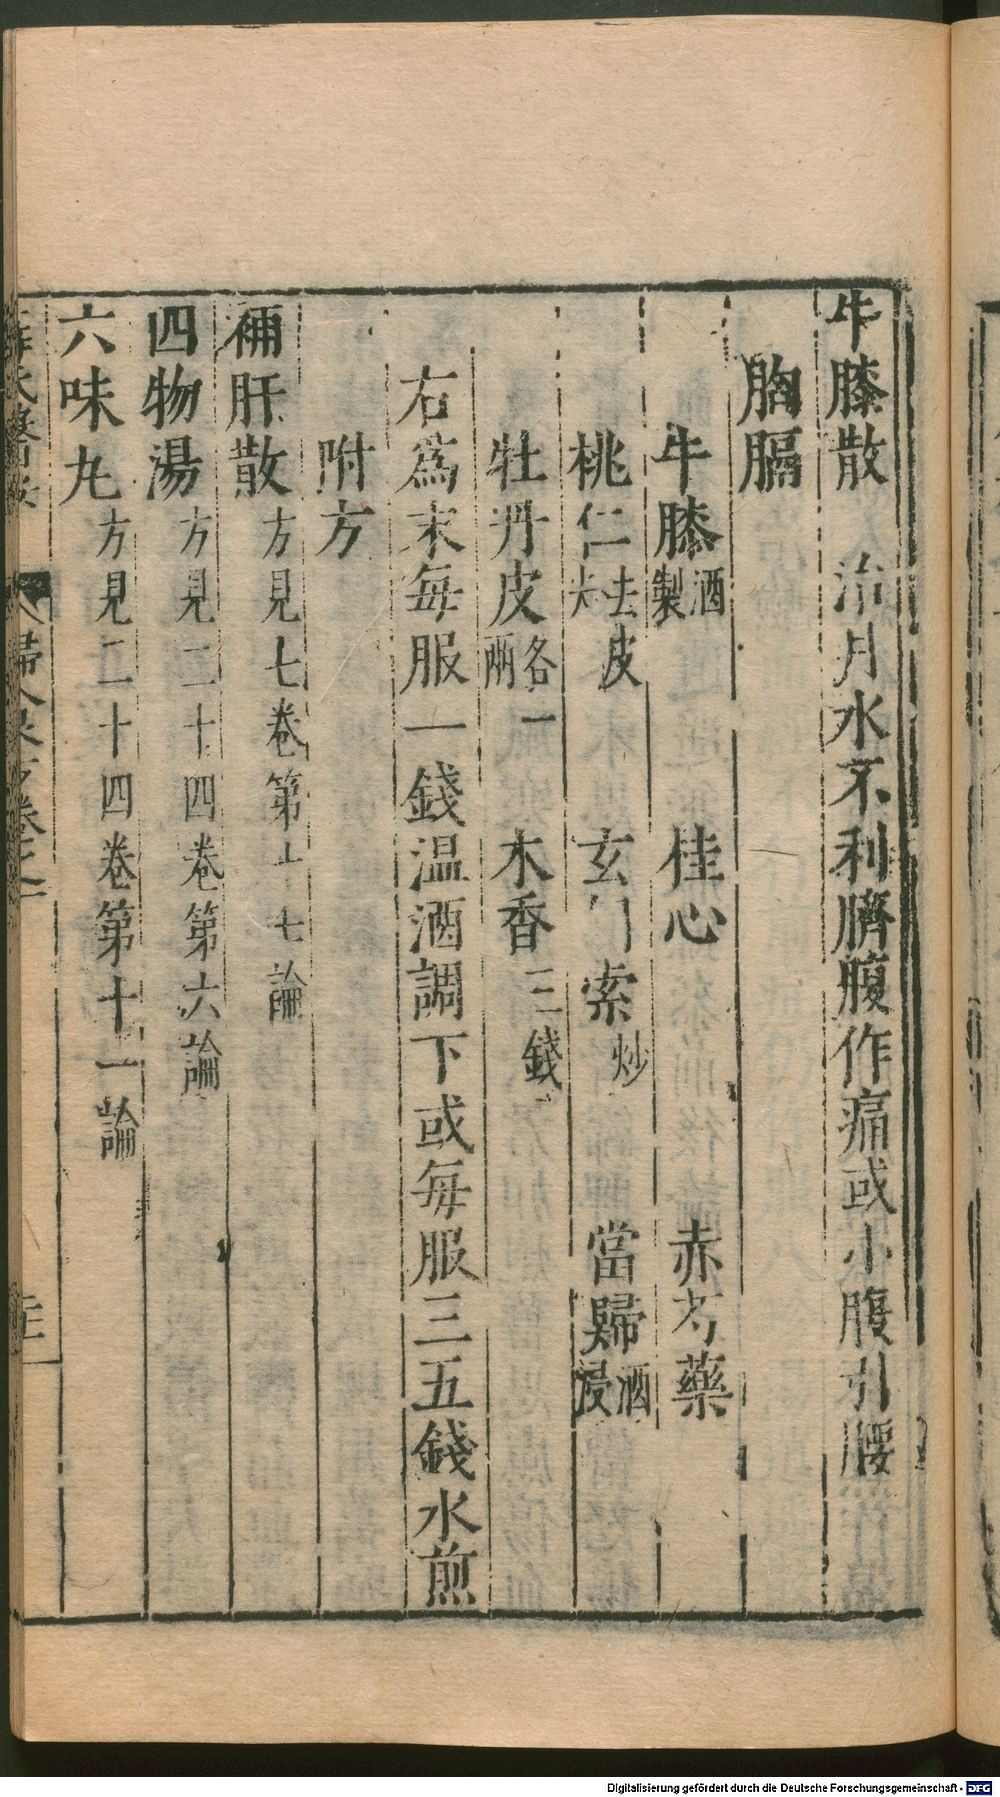 牛膝散　治月水不利臍腹作痛或小腹引腰
胸膈
牛膝酒製　桂心　赤芍藥
桃仁去皮尖　玄胡索炒　當歸酒浸
牡丹皮各一兩　木香三錢
右爲末每服一錢温酒調下或每服三五錢水煎
附方
補肝散方見七卷第十七論
四物湯方見二十四卷第六論
六味丸方見二十四卷第十一論
婦人良方卷之一
Digitalisierung gefördert durch die Deutsche Forschungsgemeinschaft - DFG